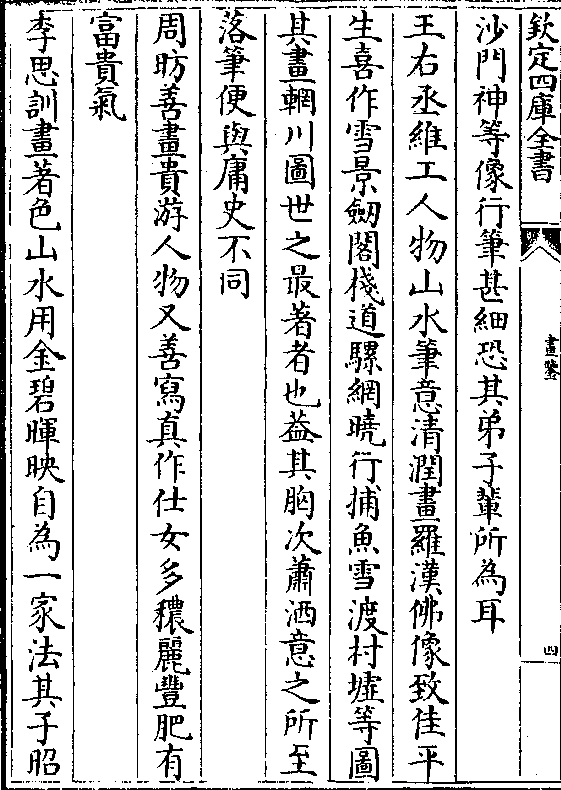 欽定四庫全書
畫鑒
四
沙門神等像行筆甚細恐其弟子輩所為耳
王右丞維工人物山水筆意清潤畫羅漢佛像致佳平
生喜作雪景劔閣棧道騾網曉行捕魚雪渡村墟等圖
其畫輞川圖世之最著者也葢其胸次蕭洒意之所至
落筆便與庸史不同
周昉善畫貴游人物又善寫真作仕女多穠麗豐肥有
富貴氣
李思訓畫著色山水用金碧暉映自為一家法其子昭